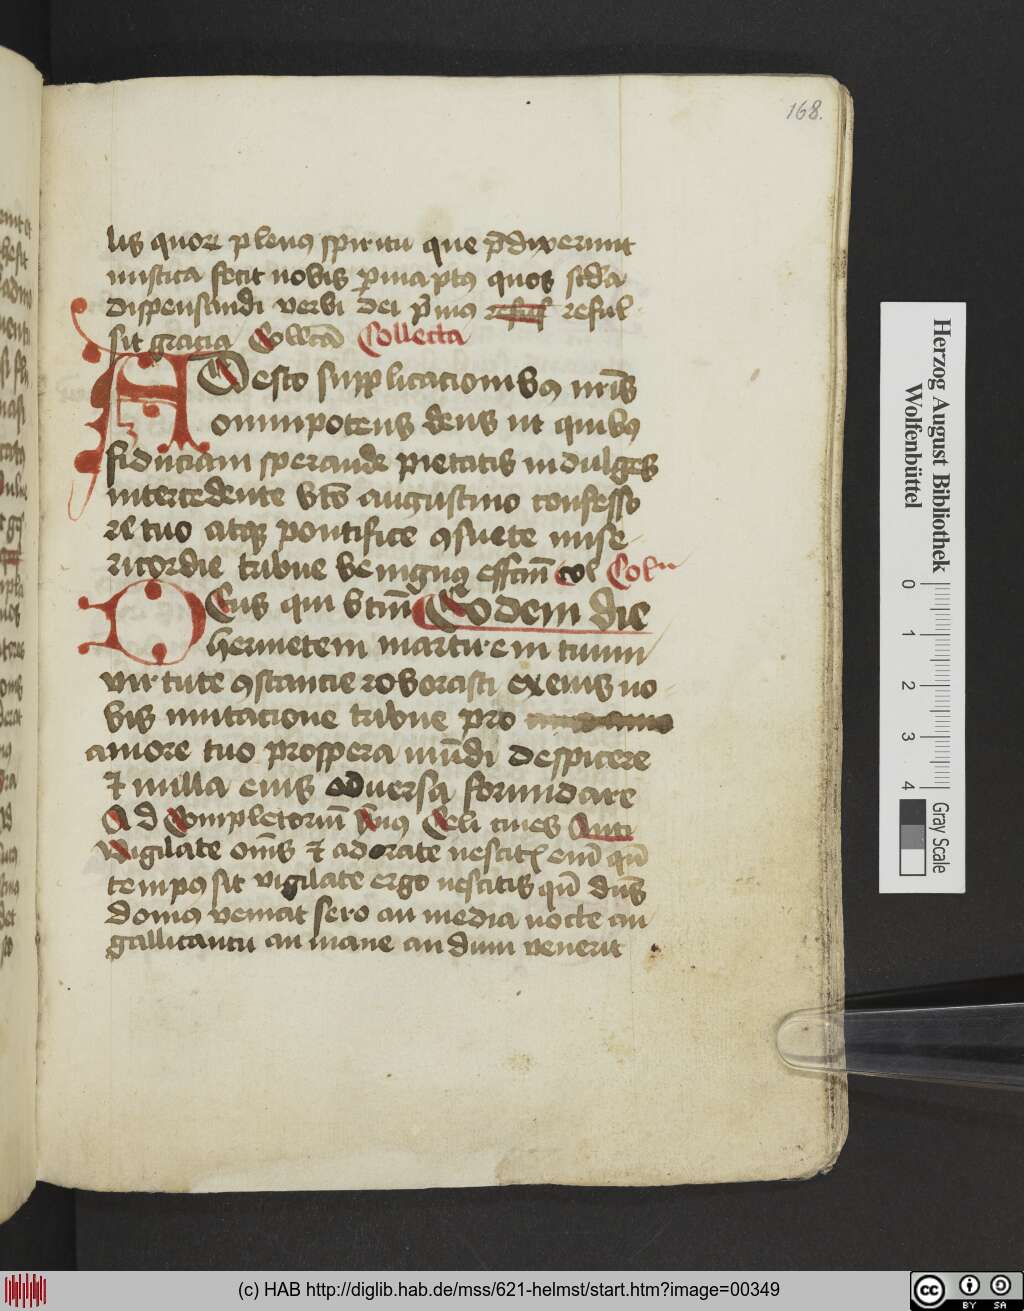 168.
lis quor plenus spiritu que p̄dixerunt
mistica fecit nobis p̱uia ptus quos scd'a
dispensandi verbi dei p̄mus resul
sit gracia Coll'cta Collecta
ADesto supplicacionibus nr̄is
omnipotens deus ut quibus
fiduciam sperande pietatis indulges
intercedente b̄to augustino confesso
re tuo atq̨ pontifice ꝯsuete mise
ricordie tribue benignus effcm̄ col Col'
DEus qui btm̄ Eodem die
hermetem martirem tuum
virtute ꝯstancie roborasti ex eius no
bis imitacione tribue pro
amore tuo prospera mūdi despicere
⁊ nulla eius adversa formidare
Ad Completoriū hꝰus Celi ciues Anti
Vigilate om̄s ⁊ adorate nescitꝭ enī qn̄
tempus sit vigilate ergo nescitis qn̄ dn̄s
domus veniat sero an media nocte an
gallicantu an mane an dum venerit
Herzog August Bibliothek
Wolfenbüttel
0 1 2 3 4
Gray Scale
(c) HAB http://diglib.hab.de/mss/621-helmst/start.htm?image=00349
cc BY SA